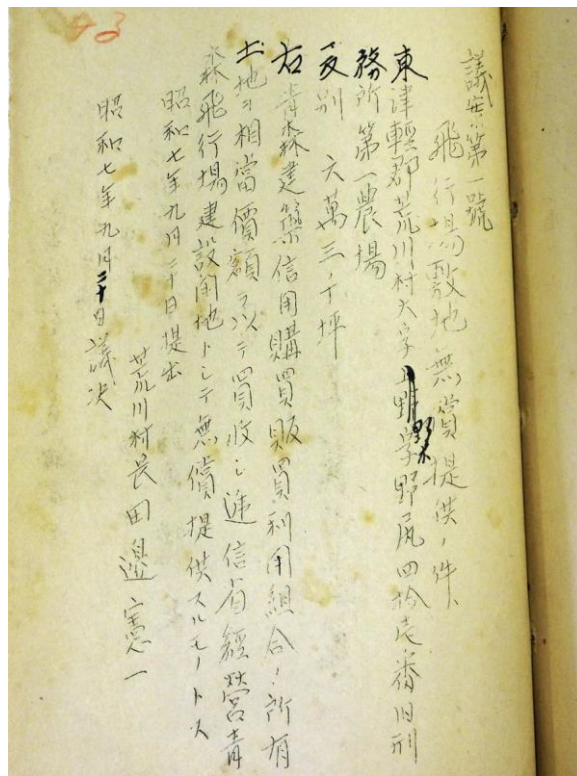 43
議案第一號
飛行場敷地無償提供ノ件
東津輕郡荒川村大字野木字野尻四拾壱番旧刑
務所第一農場
反別 六萬三千坪
右青森建築信用購買販賣利用組合ノ所有
土地ヲ相當價額ヲ以テ買收シ逓信省經営青
森飛行場建設用地トシテ無償提供スルモノトス
昭和七年九月二十日提出
荒川村長田邉憲一
昭和七年九月二十日議決